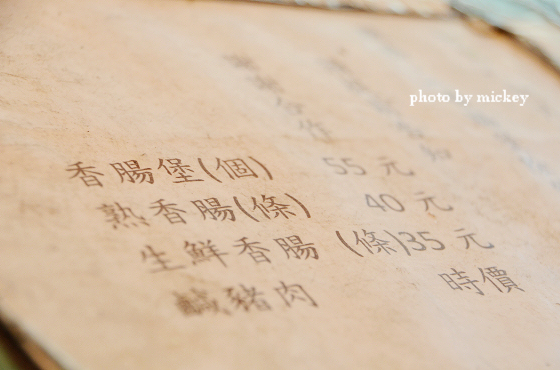 photo by mickey
香腸堡(個) 55 元
熟香腸(條) 40 元
生鮮香腸 (條)35 元
鹹豬肉 時價